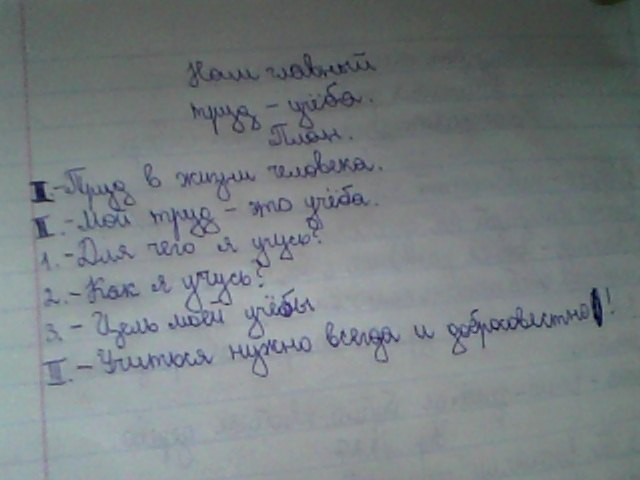 Наш главный
труд - учёба.
План.
I.-Труд в жизни человека.
II.-Мой труд - это учёба.
1.-Для чего я учусь?
2.-Как я учусь?
3.-Цель моей учёбы
III.-Учиться нужно всегда и добросовестно!